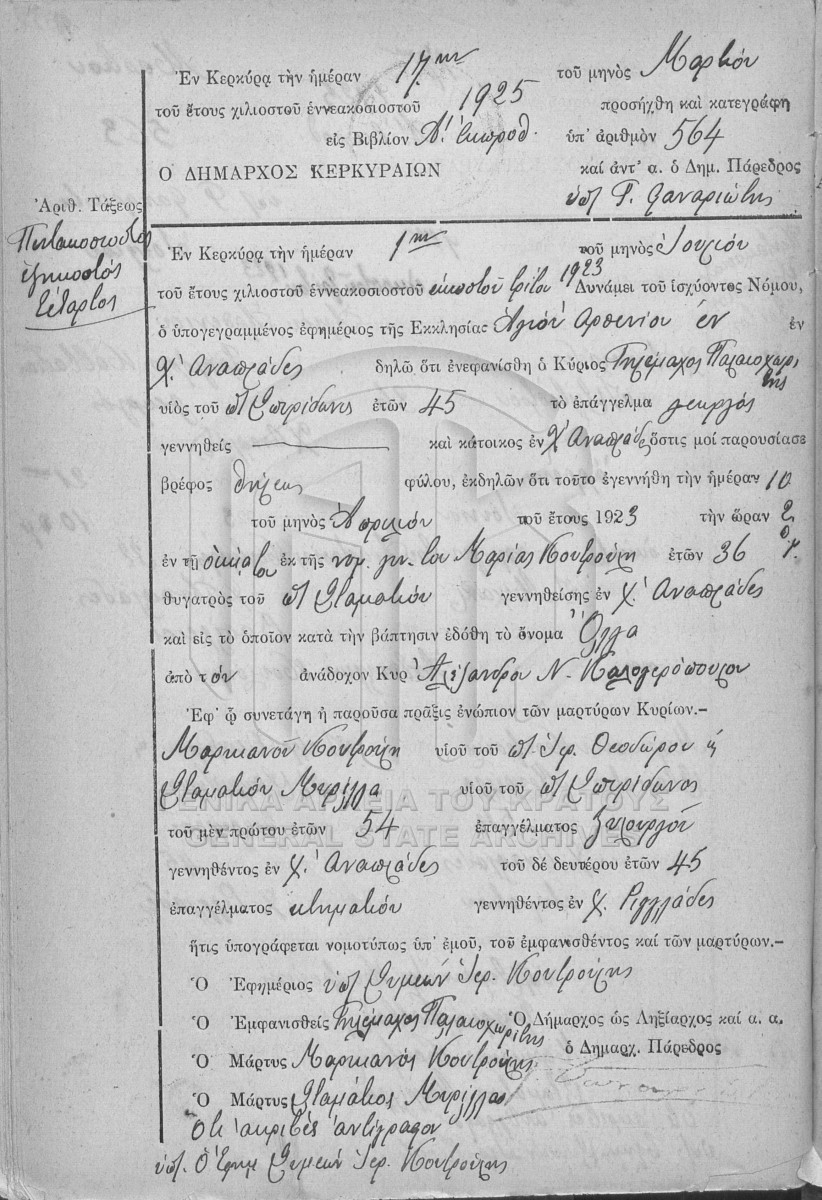 Ἐν Κερκύρᾳ τὴν ἡμέραν 17ην τοῦ μηνὸς Μαρτίου
τοῦ ἔτους χιλιοστοῦ ἐννεακοσιοστοῦ 1925 προσήχθη καὶ κατεγράφη
εἰς Βιβλίον Α! Ἐκπροθ. ὑπ' ἀριθμὸν 564
Ο ΔΗΜΑΡΧΟΣ ΚΕΡΚΥΡΑΙΩΝ καὶ ἀντ' α. ὁ Δημ. Πάρεδρος
ὑπ Γ.
Ἀριθ. Τάξεως
Πεντακοσιοστὸς
ἑξηκοστός
τέταρτος
Ἐν Κερκύρᾳ τὴν ἡμέραν 1ην τοῦ μηνὸς Ἰουνίου
τοῦ ἔτους χιλιοστοῦ ἐννεακοσιοστοῦ εἰκοστοῦ τρίτου 1923 Δυνάμει τοῦ ἰσχύοντος Νόμου,
ὁ ὑπογεγραμμένος ἐφημέριος τῆς Εκκλησίας Ἁγίου Ἀρσενίου ἐν ἐν
χ. Ἀναπλάδες δηλῶ ὅτι ἐνεφανίσθη ὁ Κύριος Τηλέμαχος Παλαιοχωρίτης
υἱὸς τοῦ Σπυρίδωνος ἐτῶν 45 τὸ ἐπάγγελμα γεωργός
γεννηθεὶς καὶ κάτοικος ἐν χ. Ἀναπλάδες ὅστις μοί παρουσίασε
βρέφος θήλεως φύλου, ἐκδηλῶν ὅτι τοῦτο ἐγεννήθη τὴν ἡμέραν 10
τοῦ μηνὸς Ἀπριλίου τοῦ ἔτους 1923 τὴν ὥραν 2
ἐν τῇ οἰκίᾳ του ἐκ τῆς νομ. γυν. του Μαρίας Κουτρούλη ἐτῶν 36
θυγατρὸς τοῦ Σταματίου γεννηθείσης ἐν χ. Ἀναπλάδες
καὶ εἰς τὸ ὁποῖον κατὰ τὴν βάπτισιν ἐδόθη τὸ ὄνομα Ὄλγα
ἀπὸ τόν ἀνάδοχον Κυρ Ἀλέξανδρον Ν. Καλογερόπουλον
Ἐφ' ᾧ συνετάγη ἡ παροῦσα πρᾶξις ἐνώπιον τῶν μαρτύρων Κυρίων.–
Μαρκιανοῦ Κουτρούλη υἱοῦ τοῦ Ἱερ. Θεοδώρου
Σταματίου Μυρίλλα υἱοῦ τοῦ Σπυρίδωνος
ΓΕΝΙΚΑ ΑΡΧΕΙΑ ΤΟΥ ΚΡΑΤΟΥΣ
τοῦ μὲν πρώτου ἐτῶν 54 ἐπαγγέλματος ξυλουργοῦ
GENERAL STATE ARCHIVES
γεννηθέντος ἐν χ. Ἀναπλάδες τοῦ δέ δευτέρου ἐτῶν 45
ἐπαγγέλματος κτηματίου γεννηθέντος ἐν χ. Ριγγλάδες
ἥτις ὑπογράφεται νομοτύπως ὑπ' ἐμοῦ, τοῦ ἐμφανισθέντος καί τῶν μαρτύρων.–
Ὁ Ἐφημέριος ὑπ Συμεών Ἱερ. Κουτρούλης
Ὁ Ἐμφανισθεὶς Τηλέμαχος Παλαιοχωρίτης Ὁ Δήμαρχος ὡς Ληξίαρχος καί α. α.
ὁ Δημαρχ. Πάρεδρος
Ὁ Μάρτυς Μαρκιανός Κουτρούλης
Ὁ Μάρτυς Σταμάτιος Μυρίλλας
Ὅτι ἀκριβές ἀντίγραφον
ὑπ. Ὁ Ἐφημ Συμεών Ἱερ. Κουτρούλης